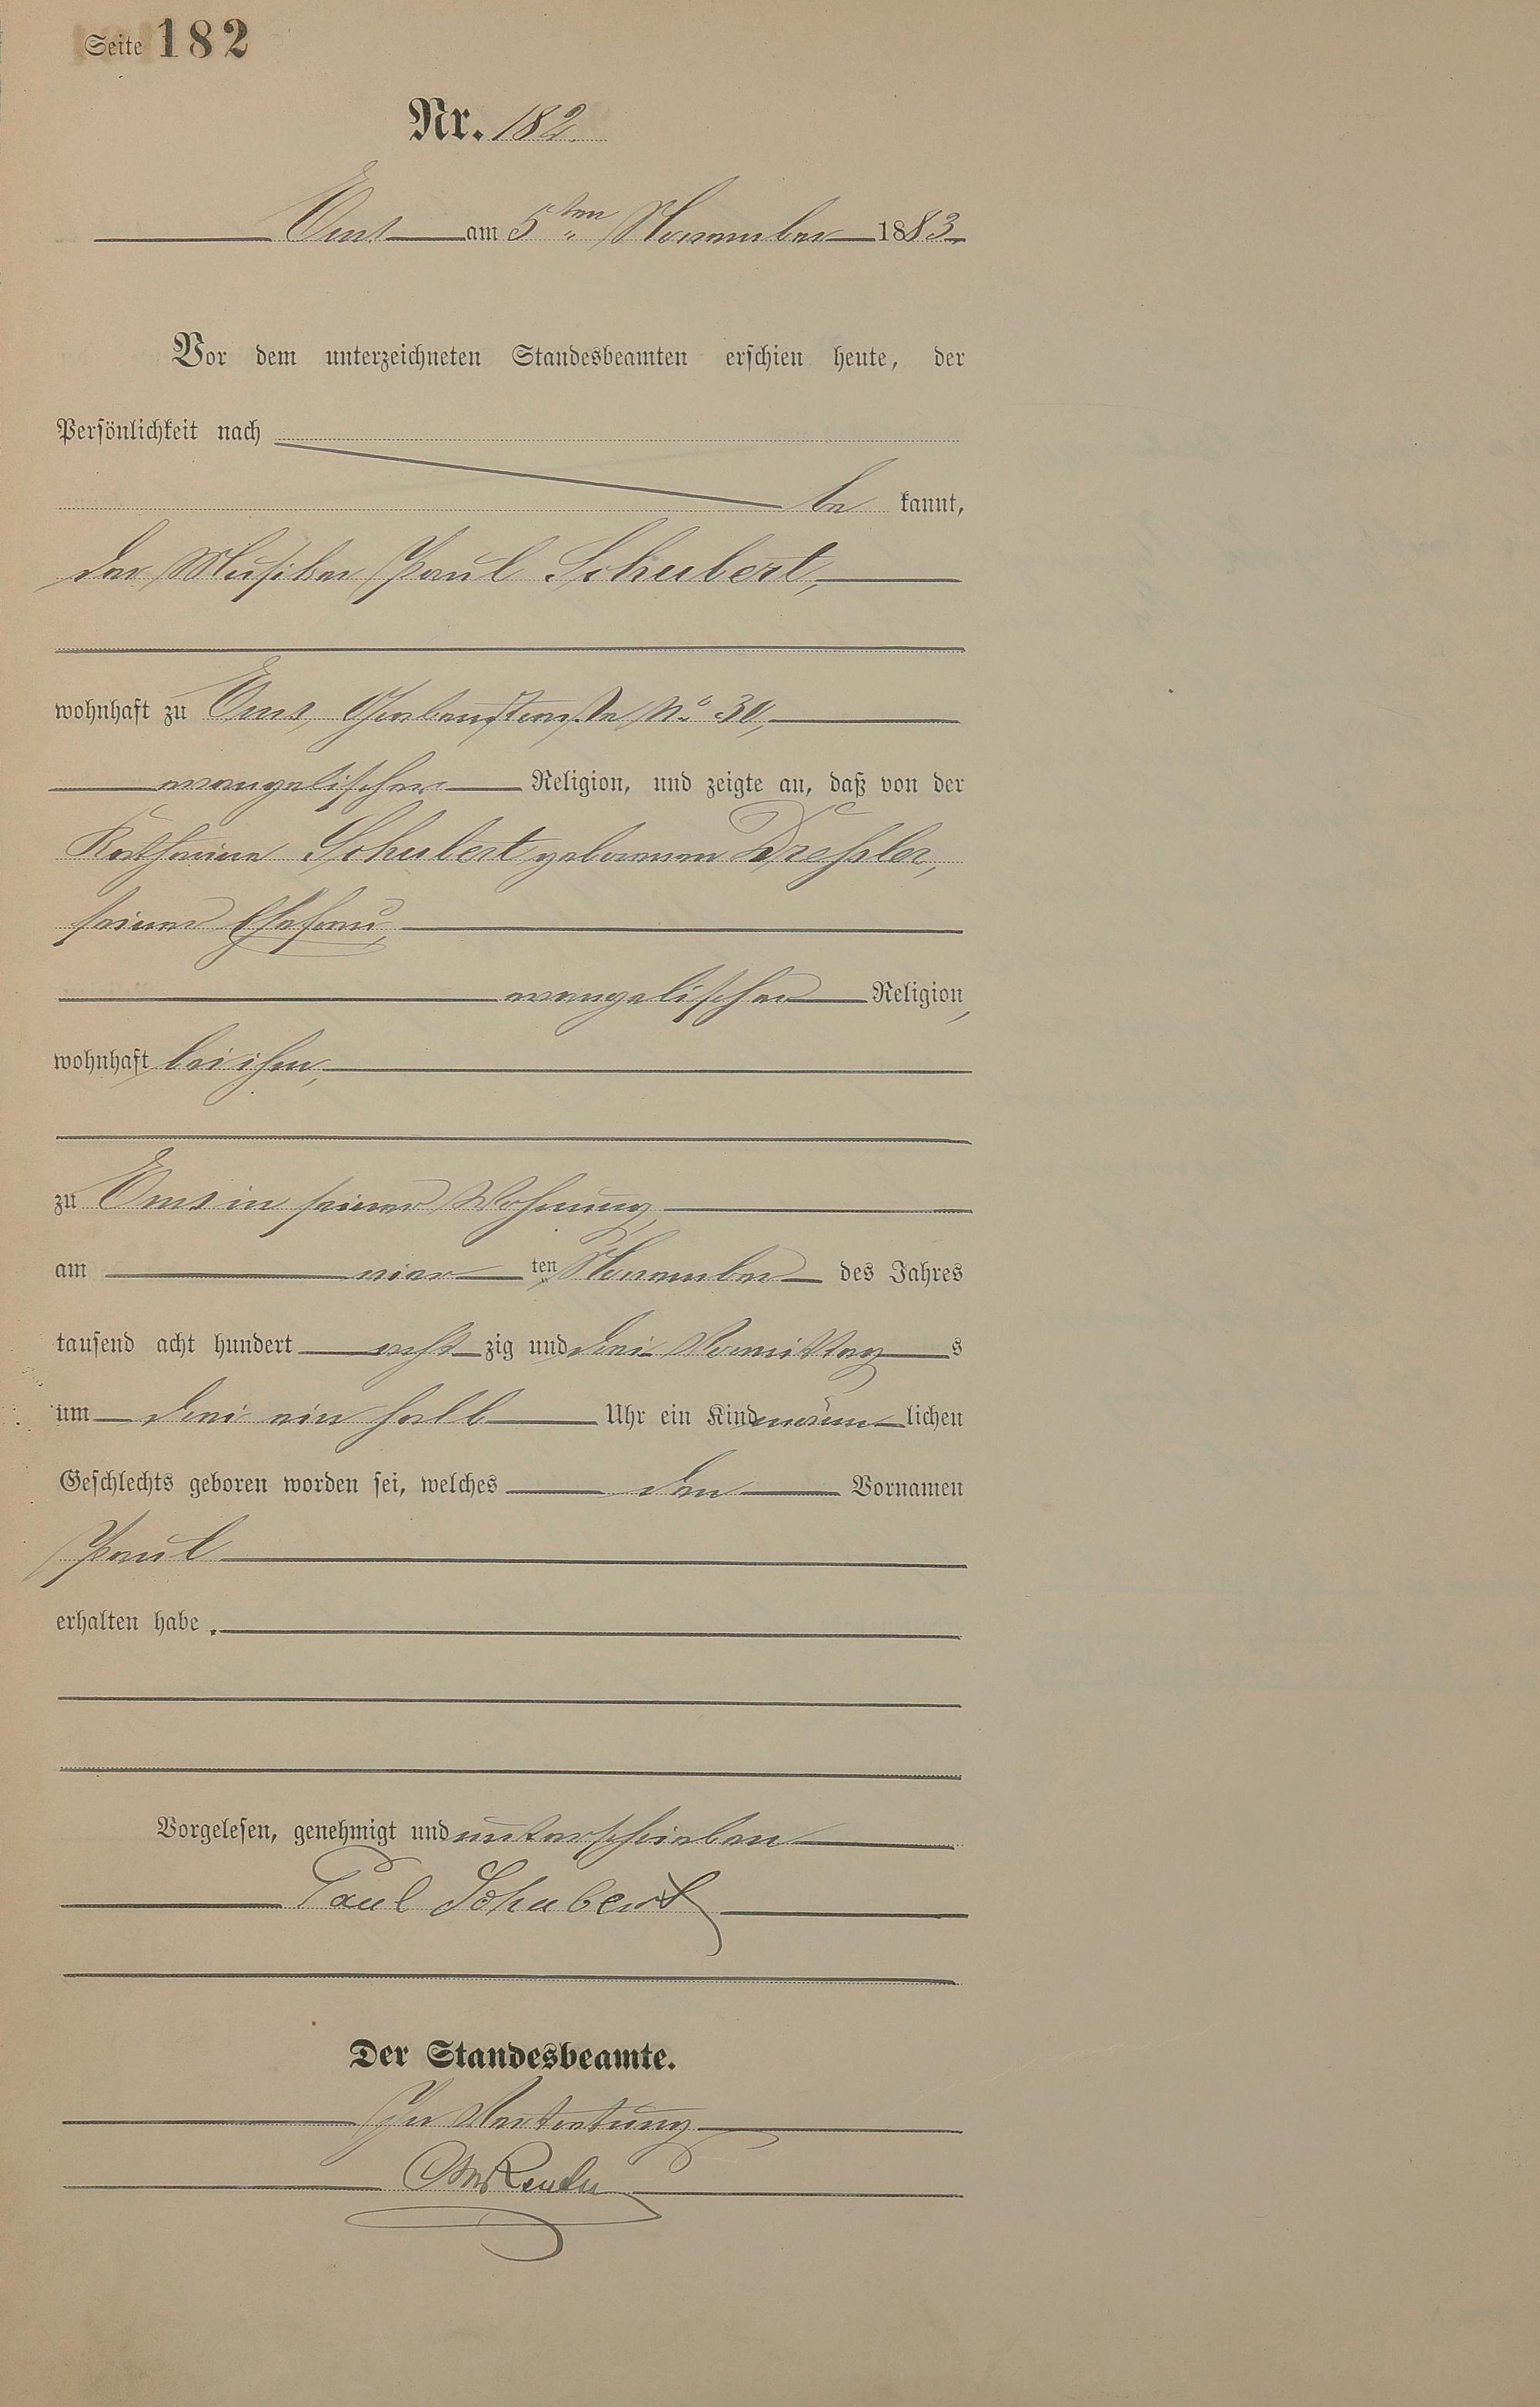 Seite 182
Nr. 182.
Ems am 5ten November 1883.
Vor dem unterzeichneten Standesbeamten erschien heute, der
Persönlichkeit nach
be kannt,
der Musiker Paul Schubert,
wohnhaft zu Ems, No 30,
evangelischer Religion, und zeigte an, daß von der
Katharine Schubert geborenen Dreßler,
seiner Ehefrau,
evangelischer Religion,
wohnhaft bei ihm,
zu Ems in seiner Wohnung,
am vier ten November des Jahres
tausend acht hundert acht zig und drei Vormittag s
um drei ein halb Uhr ein Kind männ lichen
Geschlechts geboren worden sei, welches den Vornamen
Paul
erhalten habe.
Vorgelesen, genehmigt und unterschrieben
Paul Schubert
Der Standesbeamte.
In Vertretung